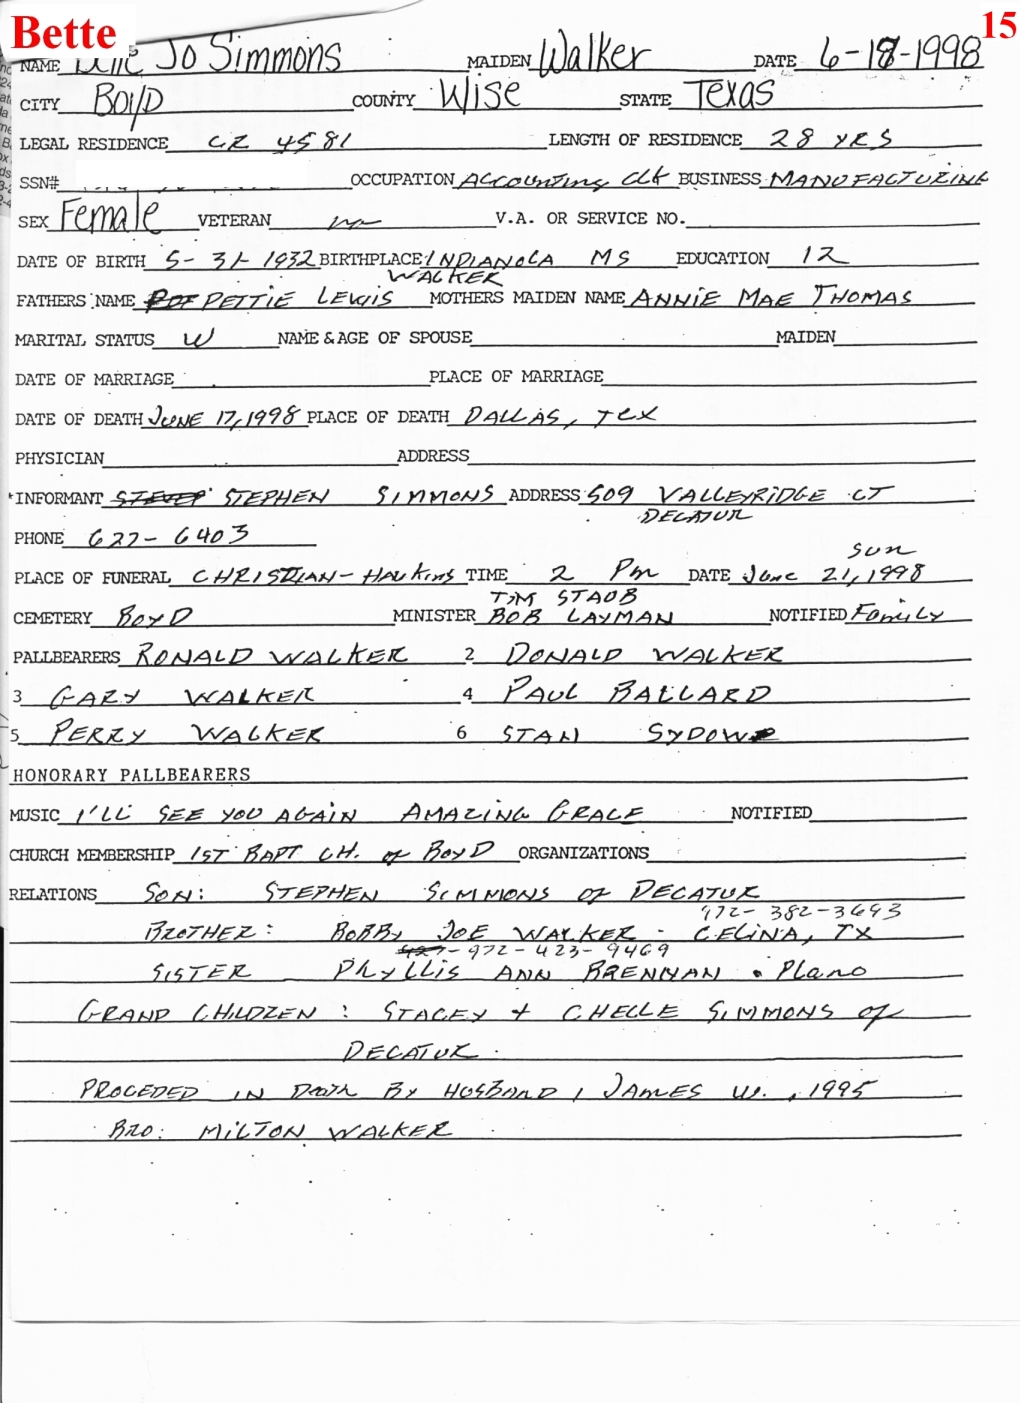 Bette 15
NAME Jo Simmons MAIDEN Walker DATE 6-18-1998
CITY BOYD COUNTY Wise STATE Texas
LEGAL RESIDENCE CR 4581 LENGTH OF RESIDENCE 28 YRS
SSN# OCCUPATION Accounting Clk BUSINESS MANUFACTURING
SEX Female VETERAN V.A. OR SERVICE NO.
DATE OF BIRTH 5-31-1932 BIRTHPLACE INDIANOLA MS EDUCATION 12
WALKER
FATHERS NAME PETTIE LEWIS MOTHERS MAIDEN NAME ANNIE MAE THOMAS
MARITAL STATUS W NAME & AGE OF SPOUSE MAIDEN
DATE OF MARRIAGE PLACE OF MARRIAGE
DATE OF DEATH JUNE 17, 1998 PLACE OF DEATH DALLAS, TEX
PHYSICIAN ADDRESS
*INFORMANT STEPHEN SIMMONS ADDRESS 509 VALLEYRIDGE CT
DECATUR
PHONE 627-6403
SUN
PLACE OF FUNERAL CHRISTIAN-HAWKINS TIME 2 Pm DATE June 21, 1998
TIM STAUB
CEMETERY BOYD MINISTER BOB LAYMAN NOTIFIED Family
PALLBEARERS RONALD WALKER 2 DONALD WALKER
3 GARY WALKER 4 PAUL BALLARD
5 PERRY WALKER 6 STAN SYDOW
HONORARY PALLBEARERS
MUSIC I'LL SEE YOU AGAIN AMAZING GRACE NOTIFIED
CHURCH MEMBERSHIP 1ST BAPT CH. of BOYD ORGANIZATIONS
RELATIONS SON: STEPHEN SIMMONS of DECATUR
972-382-3693
BROTHER: BOBBY JOE WALKER - CELINA, TX
972-423-9469
SISTER PHYLLIS ANN BRENNAN • Plano
GRAND CHILDREN: STACEY + CHELLE SIMMONS of
DECATUR.
PROCEDED IN DEATH BY HUSBAND, JAMES W., 1995
BRO: MILTON WALKER